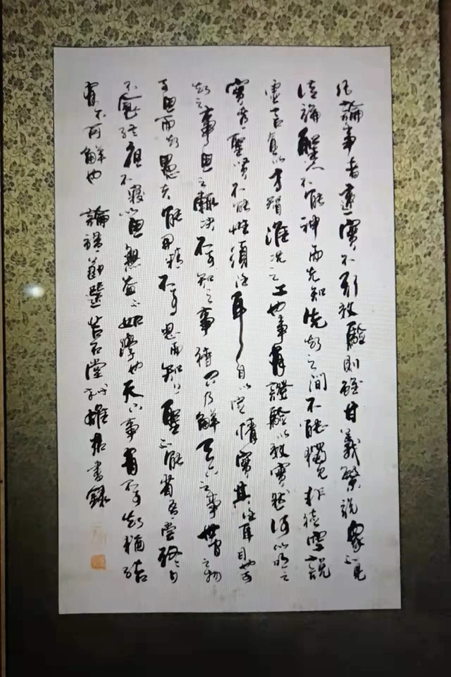 凡論事者違實不引效驗則雖甘義繁說眾不見
信論聖人不能神而先知先知之間不能獨見非徒空說
虛言直以才智准況之工也事有證驗以效實然何以明之
實者聖賢不能性須任耳目以定情實其任耳目也可
知之事思之輒決不可知之事待問乃解天下之事世間之物
可思而知愚夫能開精不可思而知上聖不能省吾嘗終日
不食終夜不寢以思無益不如學也天下事有不可知猶結
有不可解也 論 石堂 書錄